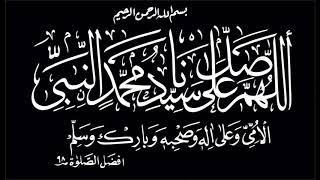 بسم الله الرحمن الرحيم
اللهم صل على سيدنا محمد النبي
الأمي وعلى آله وصحبه وبارك وسلم
افضل الصلوة